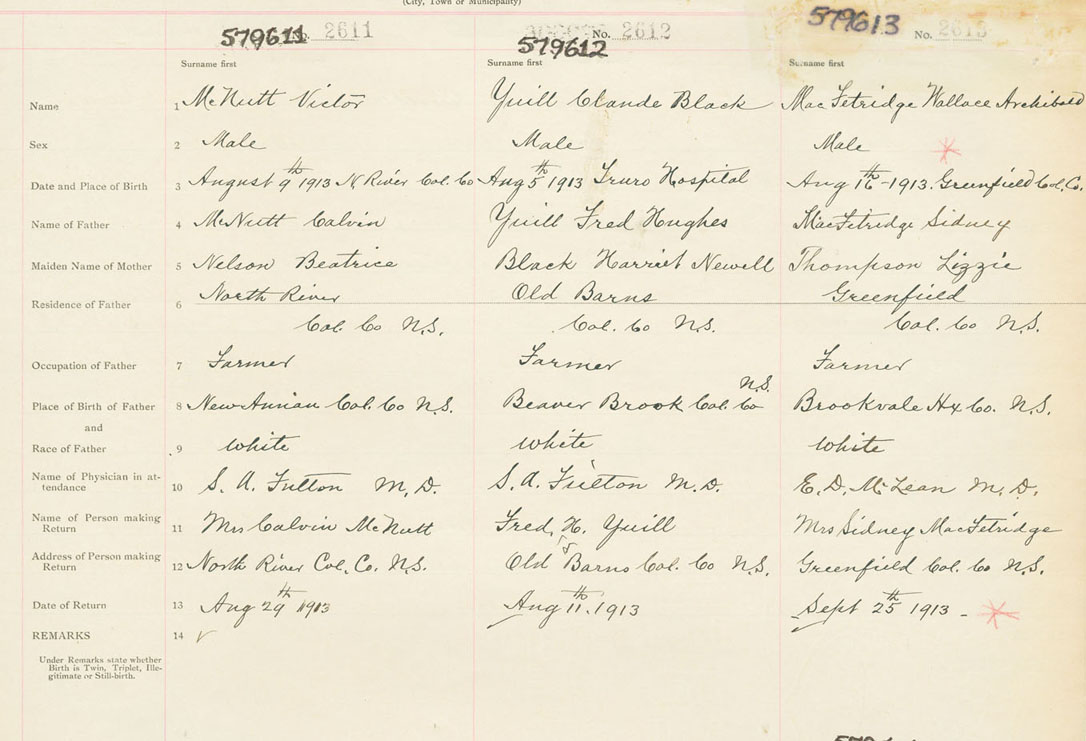 (City, Town or Municipality)
579611 No. 2611
No. 2612
579612
579613 No. 2613
Surname first Surname first Surname first
Name 1 McNutt Victor Yuill Claude Black MacFetridge Wallace Archibald
Sex 2 Male Male Male
Date and Place of Birth 3 August 9th 1913 N River Col. Co Aug 5th 1913 Truro Hospital Aug 16th - 1913. Greenfield Col. Co.
Name of Father 4 McNutt Calvin Yuill Fred Hughes MacFetridge Sidney
Maiden Name of Mother 5 Nelson Beatrice Black Harriet Newell Thompson Lizzie
Residence of Father 6 North River Old Barns Greenfield
Col. Co N.S. Col. Co N.S. Col. Co N.S.
Occupation of Father 7 Farmer Farmer Farmer
Place of Birth of Father 8 New Annan Col. Co N.S. Beaver Brook Col. Co N.S. Brookvale Hx Co. N.S.
and
Race of Father 9 White White White
Name of Physician in at-
tendance 10 S. A. Fulton M. D. S. A. Fulton M. D. E. D. McLean M. D.
Name of Person making
Return 11 Mrs Calvin McNutt Fred, H. Yuill Mrs Sidney MacFetridge
Address of Person making
Return 12 North River Col. Co. N.S. Old Barns Col. Co N.S. Greenfield Col. Co N.S.
Date of Return 13 Aug 29th 1913 Aug 11th. 1913 Sept 25th 1913 -
REMARKS 14
Under Remarks state whether
Birth is Twin, Triplet, Ille-
gitimate or Still-birth.